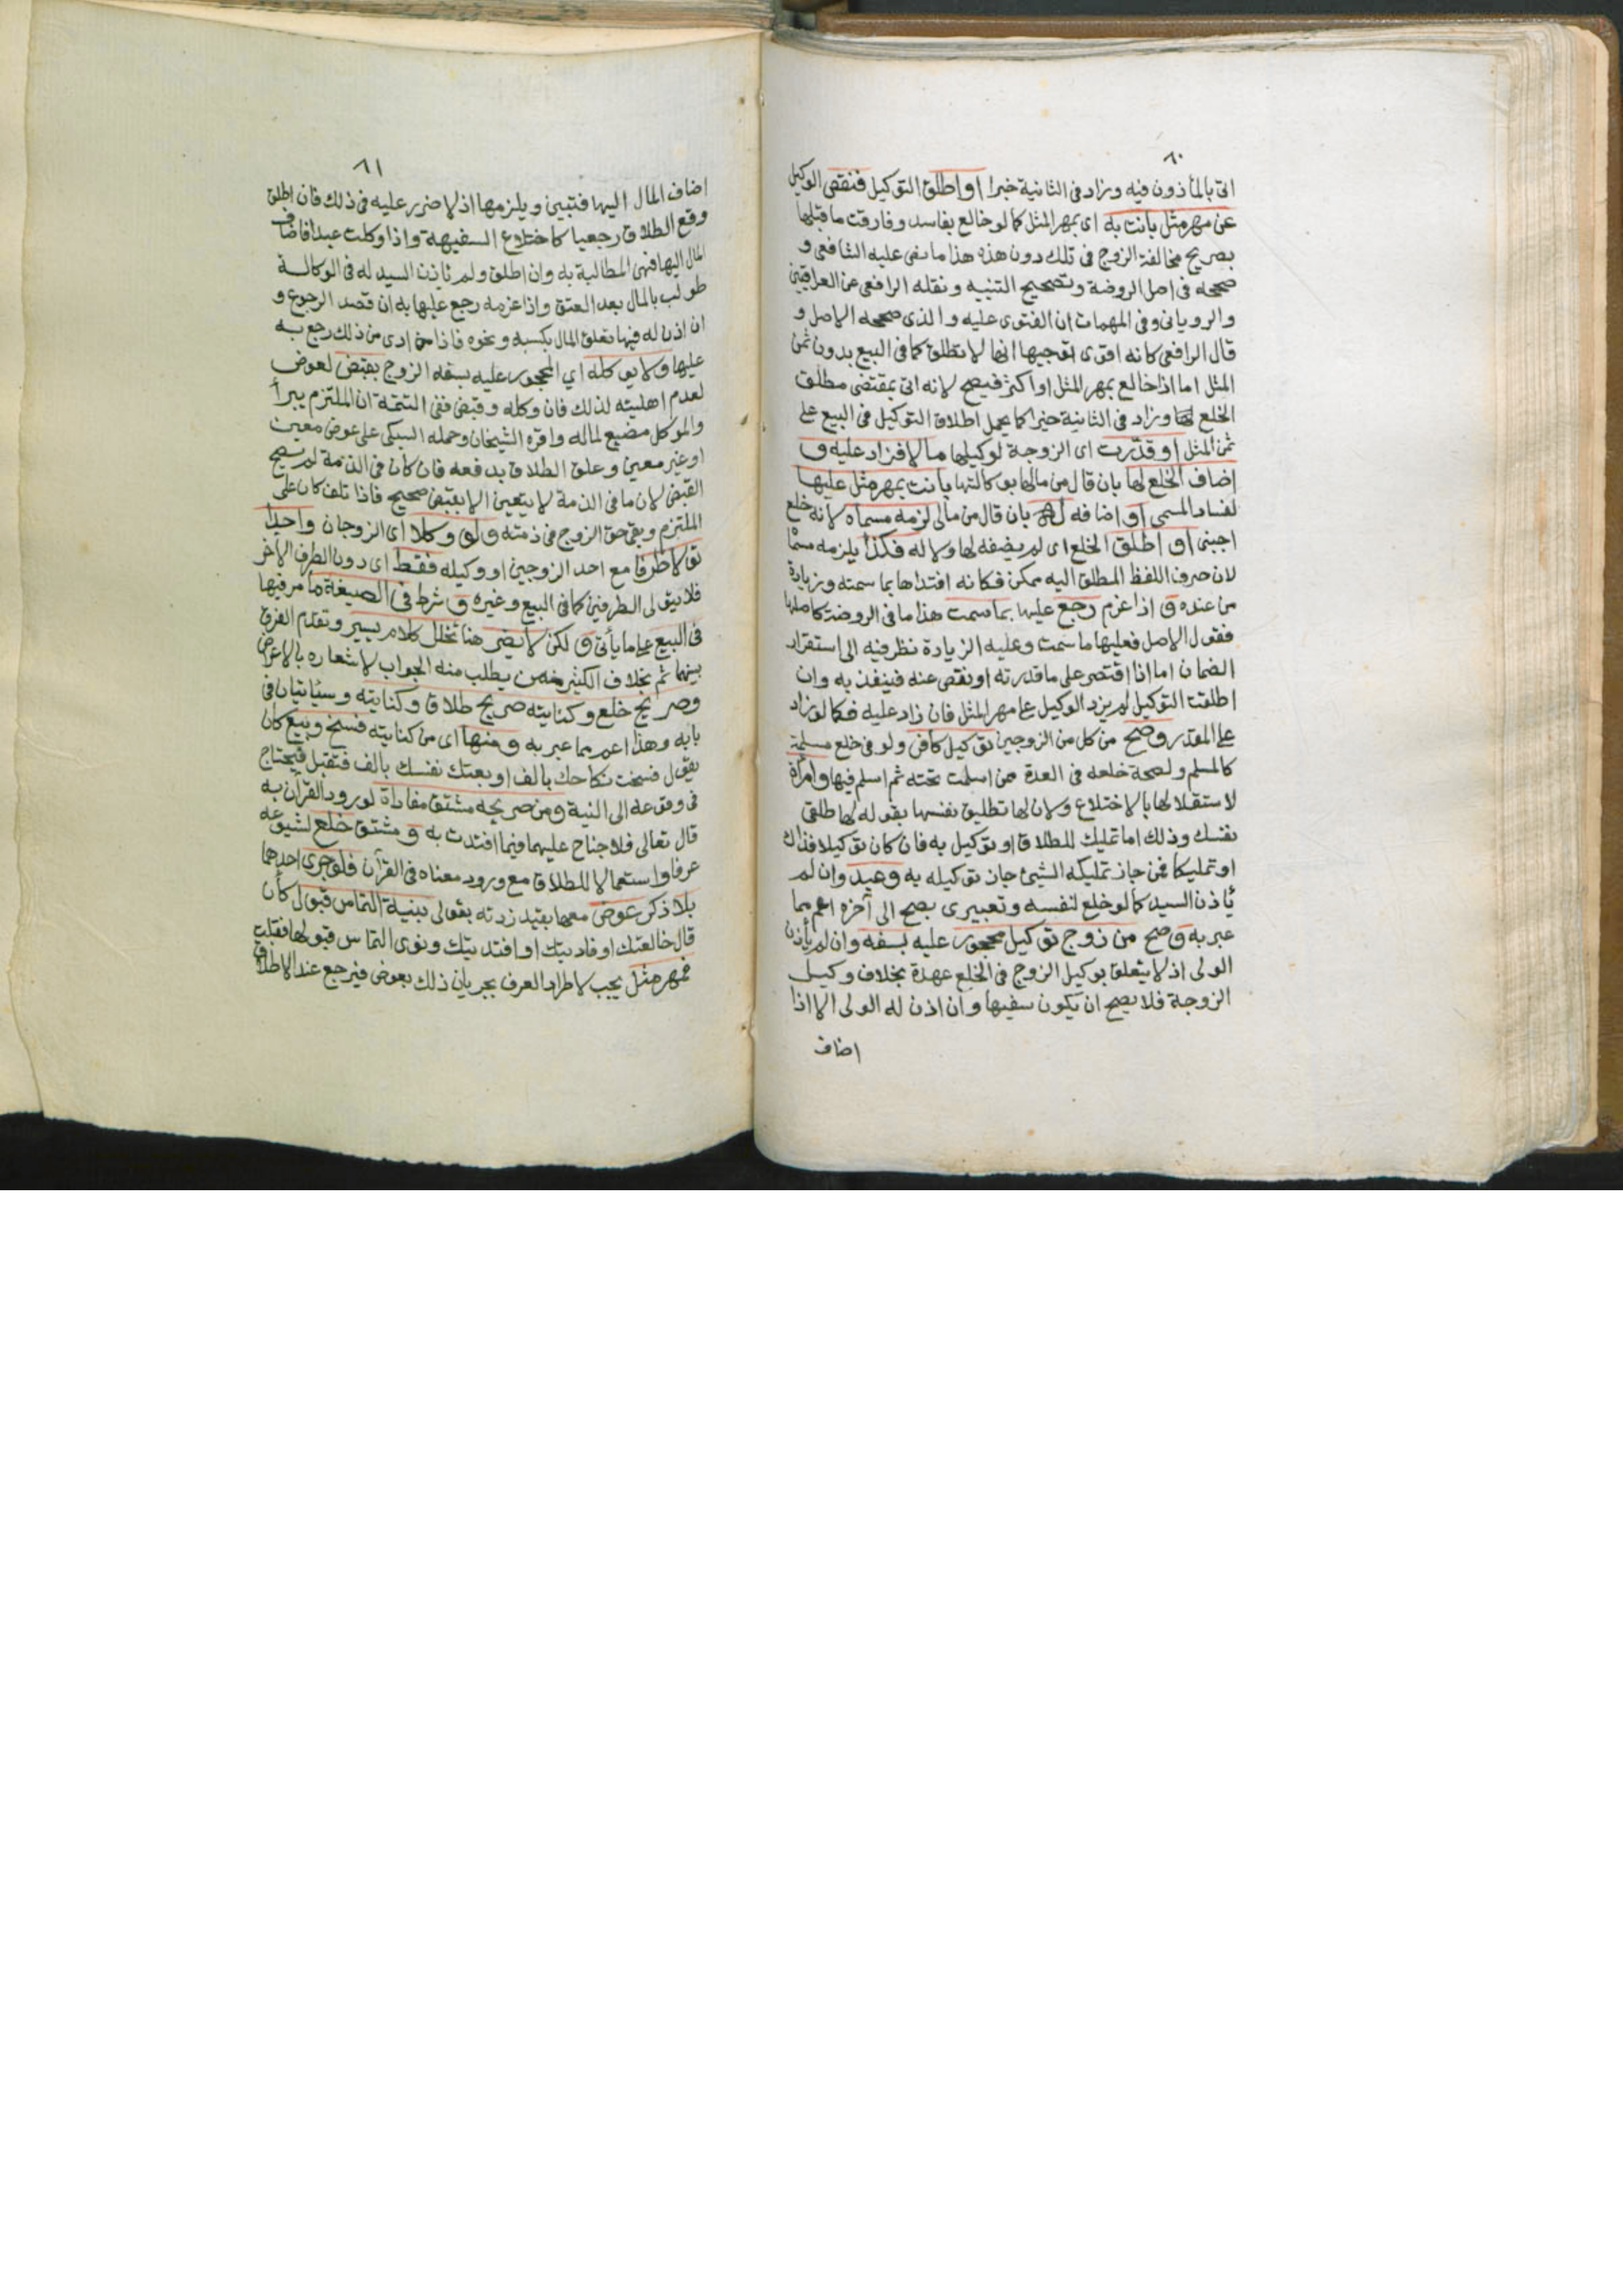 ٦٠
اتى بالمأذون فيه وزاد فى الثانية خيرا او اطلق التوكيل فنقص الوكيل
عن مهر مثل بانت به اى بمهر المثل كما لو خالع بفاسد وفارقت ما قبلها
بصريح مخالفة الزوج فى تلك دون هذه هذا ما نص عليه الشافعى و
صححه فى اصل الروضة وتصحيح التنبيه ونقله الرافعى عن العراقيين
والرويانى وفى المهمات ان الفتوى عليه والذى صححه الاصل و
قال الرافعى كانه اقوى توجيها انها لا تطلق كما فى البيع بدون ثمن
المثل اما اذا خالع بمهر المثل او اكثر فيصح لانه اتى بمقتضى مطلق
الخلع وزاد فى الثانية خيرا كما يحمل اطلاق التوكيل فى البيع على
ثمن المثل او قدّرت اى الزوجة لوكيلها مالا فزاد عليه و
اضاف الخلع لها بان قال من مالها بوكالتها بانت بمهر مثل عليها
لفساد المسمى او اضافه له بان قال من مالى لزمه مسماه لانه خلع
اجنبى او اطلق الخلع اى لم يضفه لها ولا له فكذا يلزمه مسمّا
لان صرف اللفظ المطلق اليه ممكن فكانه افتداها بما سمته وزيادة
من عنده و اذا غرم رجع عليها بما سمت هذا ما فى الروضة كاصلها
فقول الاصل فعليها ما سمت وعليه الزيادة نظر فيه الى استقرار
الضمان اما اذا اقتصر على ما قدرته او نقص عنه فينفذ به وان
اطلقت التوكيل لم يزد الوكيل على مهر المثل فان زاد عليه فكما لو زاد
على المقدر وصح من كل من الزوجين توكيل كافر ولو فى خلع مسلمة
كالمسلم ولصحة خلعه فى العدة ممن اسلمت تحته ثم اسلم فيها وامرأة
لاستقلالها بالاختلاع ولان لها تطليق نفسها بقوله لها طلقى
نفسك وذلك اما تمليك للطلاق او توكيل به فان كان توكيلا فذاك
او تمليكا فمن جاز تمليكه الشئ جاز توكيله به وعبد وان لم
يأذن السيد كما لو خلع لنفسه وتعبيرى بصح الى آخره اعم مما
عبر به و صح من زوج توكيل محجور عليه بسفه وان لم يأذن
الولى اذ لا يتعلق بوكيل الزوج فى الخلع عهدة بخلاف وكيل
الزوجة فلا يصح ان يكون سفيها وان اذن له الولى الا اذا
اضاف
٦١
اضاف المال اليها فتبين ويلزمها اذ لا ضرر عليه فى ذلك فان اطلق
وقع الطلاق رجعيا كاختلاع السفيهة واذا وكلت عبدا فاضاف
المال اليها فهى المطالبة به وان اطلق ولم يأذن السيد له فى الوكالة
طولب بالمال بعد العتق واذا غرمه رجع عليها به ان قصد الرجوع و
ان اذن له فيها تعلق المال بكسبه ونحوه فاذا ادى من ذلك رجع به
عليها ولا يوكله اي المحجور عليه بسفه الزوج بقبض لعوض
لعدم اهليته لذلك فان وكله وقبض ففى التتمة ان الملتزم يبرأ
والموكل مضيع لماله واقره الشيخان وحمله السبكى على عوض معين
او غير معين وعلق الطلاق بدفعه فان كان فى الذمة لم يصح
القبض لان ما فى الذمة لا يتعين الا بقبض صحيح فاذا تلف كان على
الملتزم وبقى حق الزوج فى ذمته ولو وكلا اى الزوجان واحدا
تولا طرفا مع احد الزوجين او وكيله فقط اى دون الطرف الآخر
فلا يتولى الطرفين كما فى البيع وغيره و شرط فى الصيغة ما مر فيها
فى البيع على ما يأتى و لكن لا يضر هنا تخلل كلام يسير وتقدم الفرق
بينهما ثم بخلاف الكثير ممن يطلب منه الجواب لاشعاره بالاعراض
وصريح خلع وكنايته صريح طلاق وكنايته وسيأتيان فى
بابه وهذا اعم مما عبر به و منها اى من كنايته فسخ وبيع كان
يقول فسخت نكاحك بالف او بعتك نفسك بالف فتقبل فيحتاج
فى وقوعه الى النية ومن صريحه مشتق مفاداة لورود القرآن به
قال تعالى فلا جناح عليهما فيما افتدت به و مشتق خلع لشيوعه
عرفا واستعمالا للطلاق مع ورود معناه فى القرآن فلو جرى احدهما
بلا ذكر عوض معها بقيد زدته بقولى بنية التماس قبول كأن
قال خالعتك او فاديتك او افتديتك ونوى التماس قبولها فقبلت
فمهر مثل يجب لاطراد العرف بجريان ذلك بعوض فيرجع عند الاطلاق